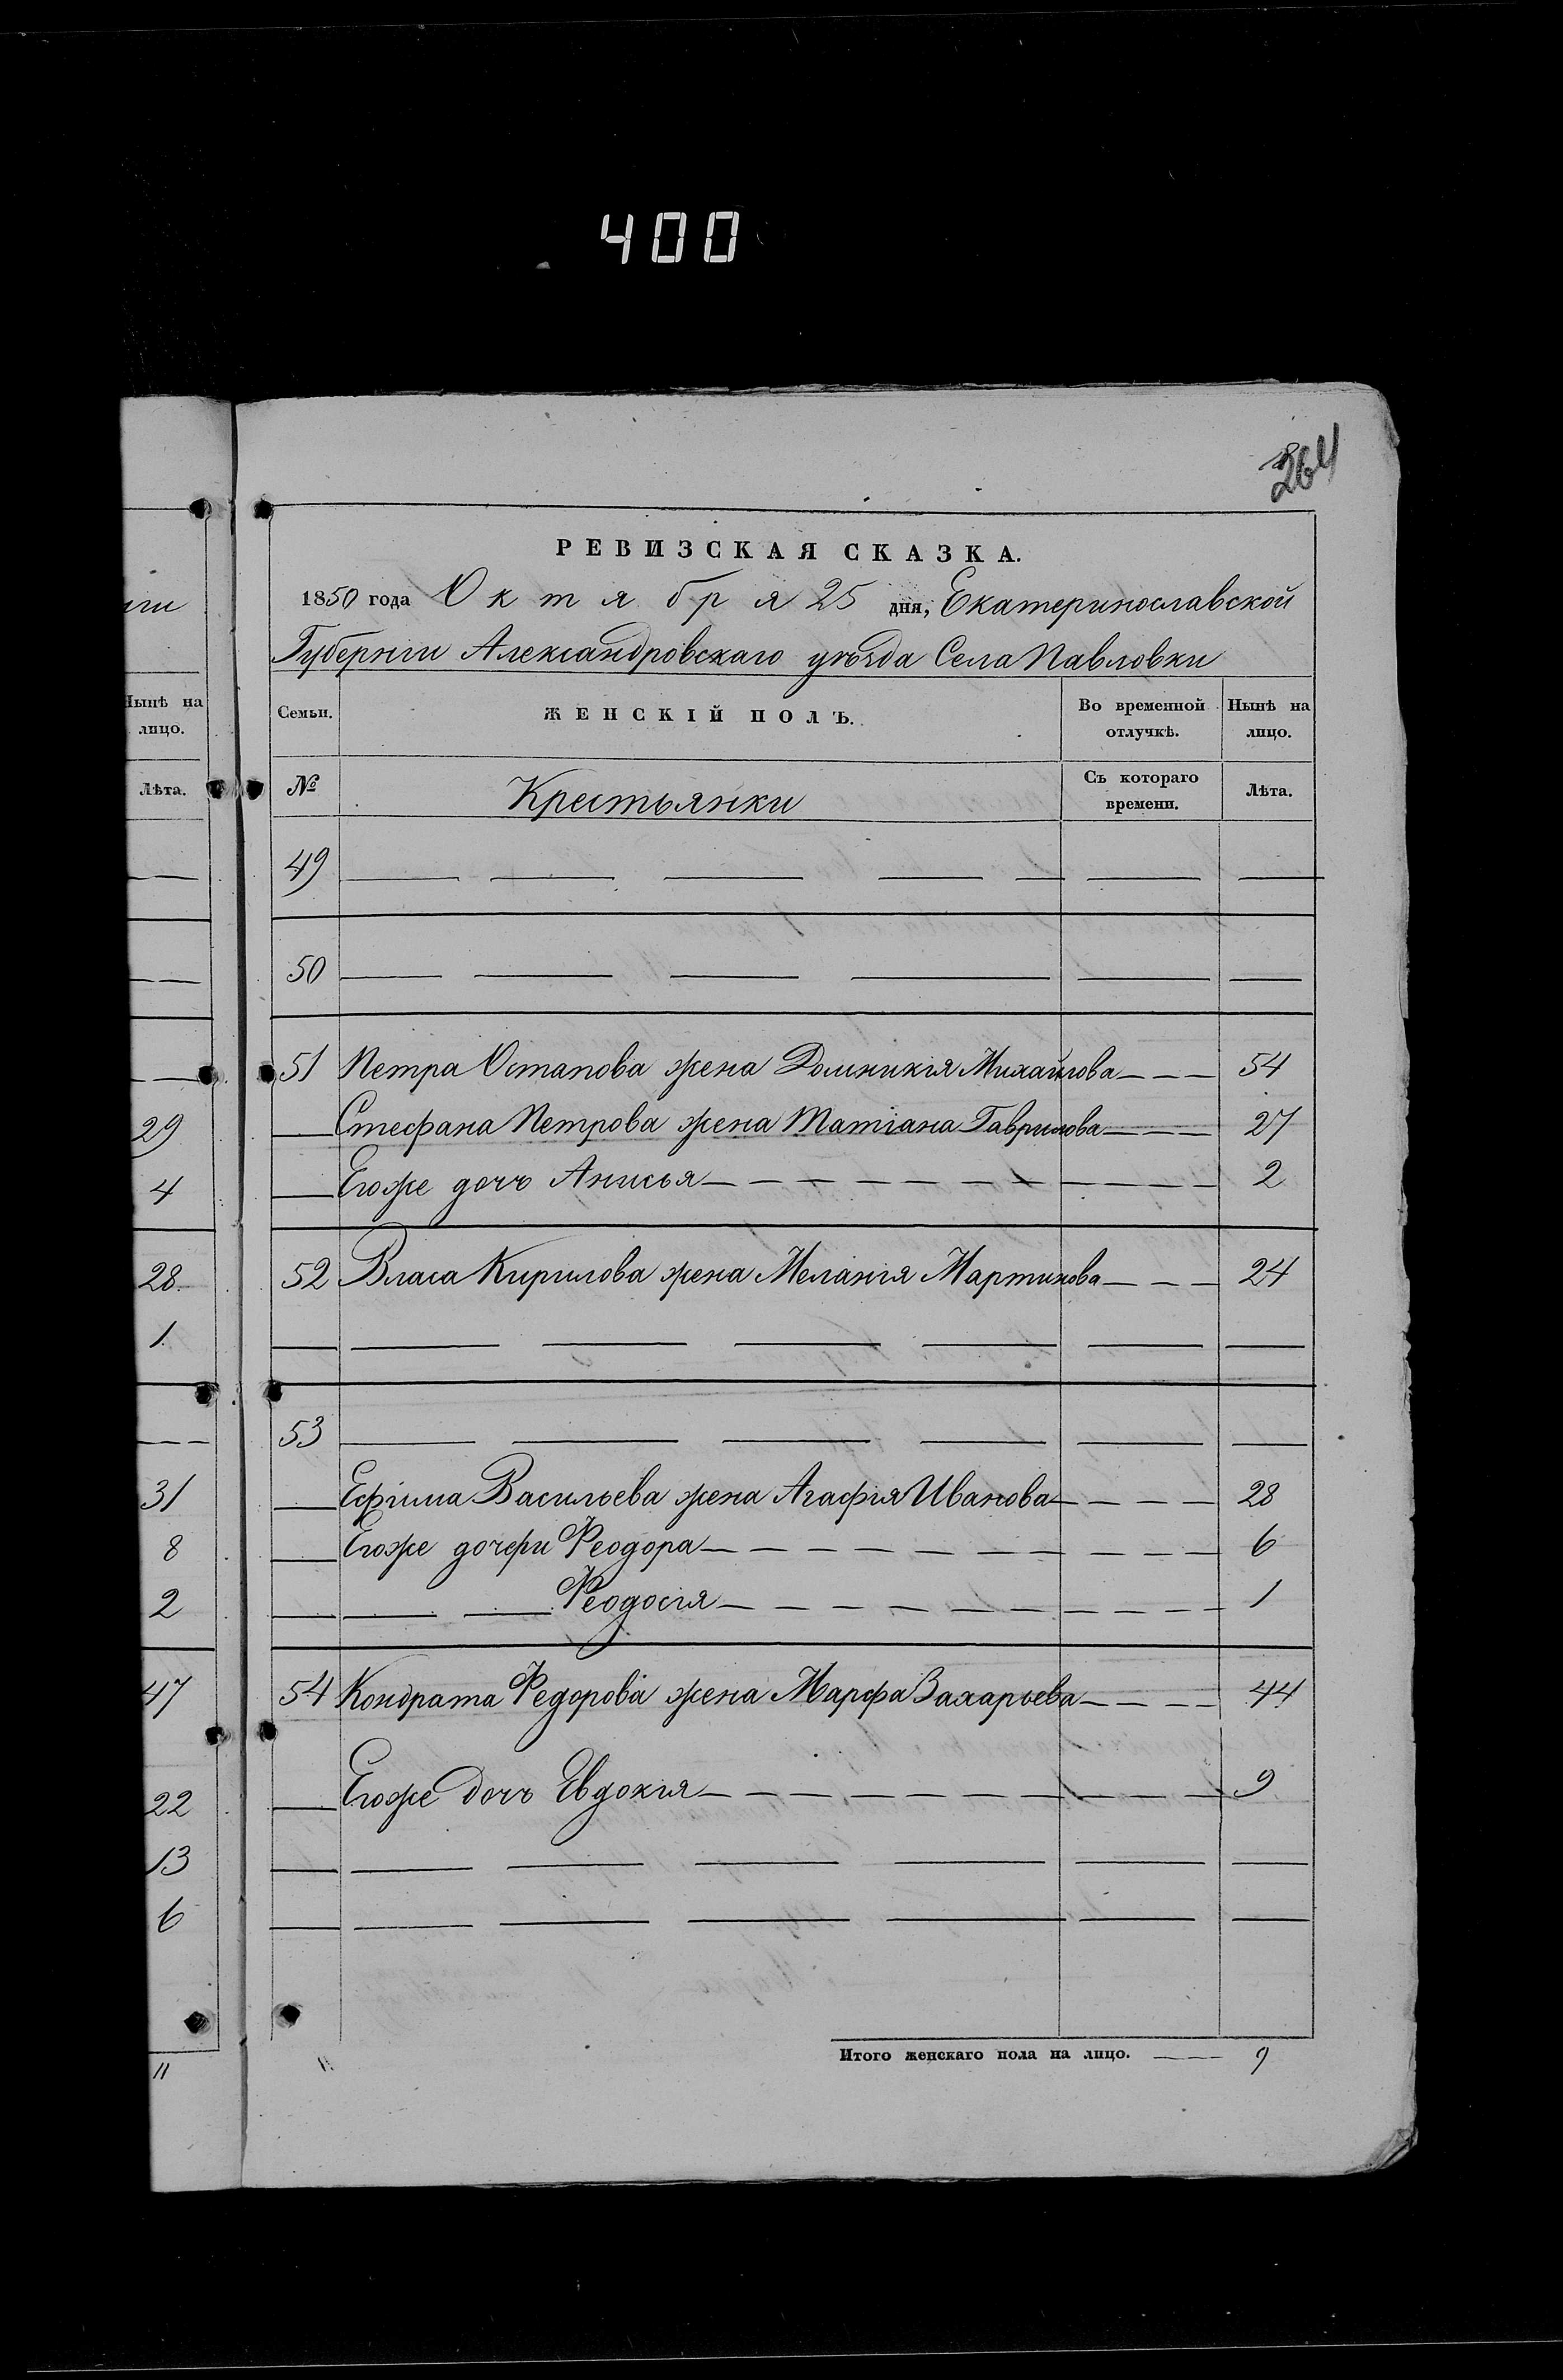 400
264
РЕВИЗСКАЯ СКАЗКА.
1850 года Октября 25 дня, Екатеринославской
Губерніи Александровскаго уѣзда Села Павловки
Семьи. ЖЕНСКІЙ ПОЛЪ. Во временной отлучкѣ. Нынѣ на лицо.
№ Крестьянки Съ котораго времени. Лѣта.
49
50
51 Петра Остапова жена Домникія Михайлова 54
Стефана Петрова жена Татіана Гаврилова 27
Егоже дочъ Анисья 2
52 Власа Кирилова жена Меланія Мартинова 24
53
Ефіима Васильева жена Агафія Иванова 28
Егоже дочери Феодора 6
Феодосія 1
54 Кондрата Федорова жена Марфа Захарьева 44
Егоже дочъ Евдокія 9
Итого женскаго пола на лицо. 9
Нынѣ на
лицо.
Лѣта.
29
4
28
1
31
8
2
47
22
13
6
11